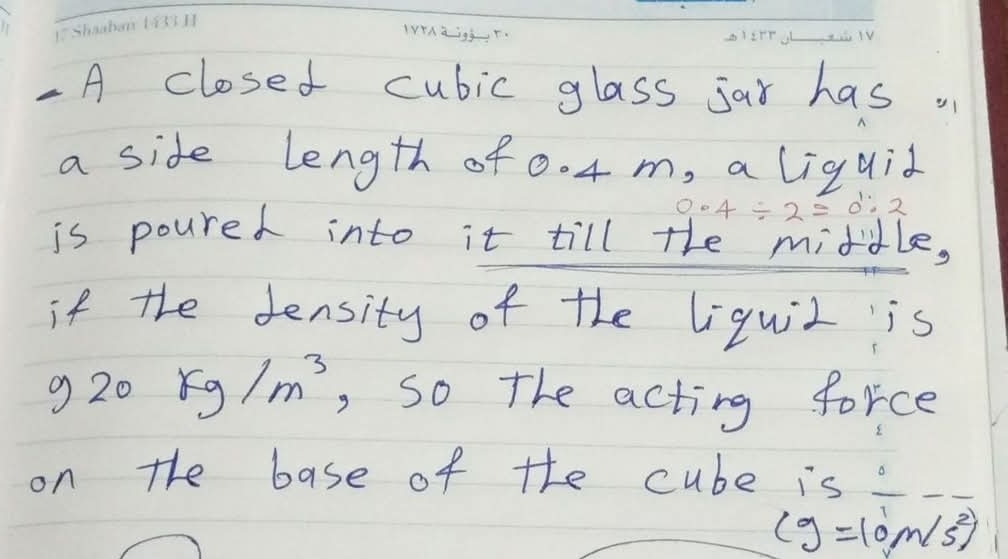 17 Shaaban 1433 H ٣٠ بـؤونة ١٧٢٨ ١٧ شعبـــان ١٤٣٣هـ
- A closed cubic glass jar has
a side length of 0.4 m, a liquid
0.4 ÷ 2 = 0.2
is poured into it till the middle,
if the density of the liquid is
920 Kg/m³, so the acting force
on the base of the cube is _ _ _
(g = 10 m/s²)